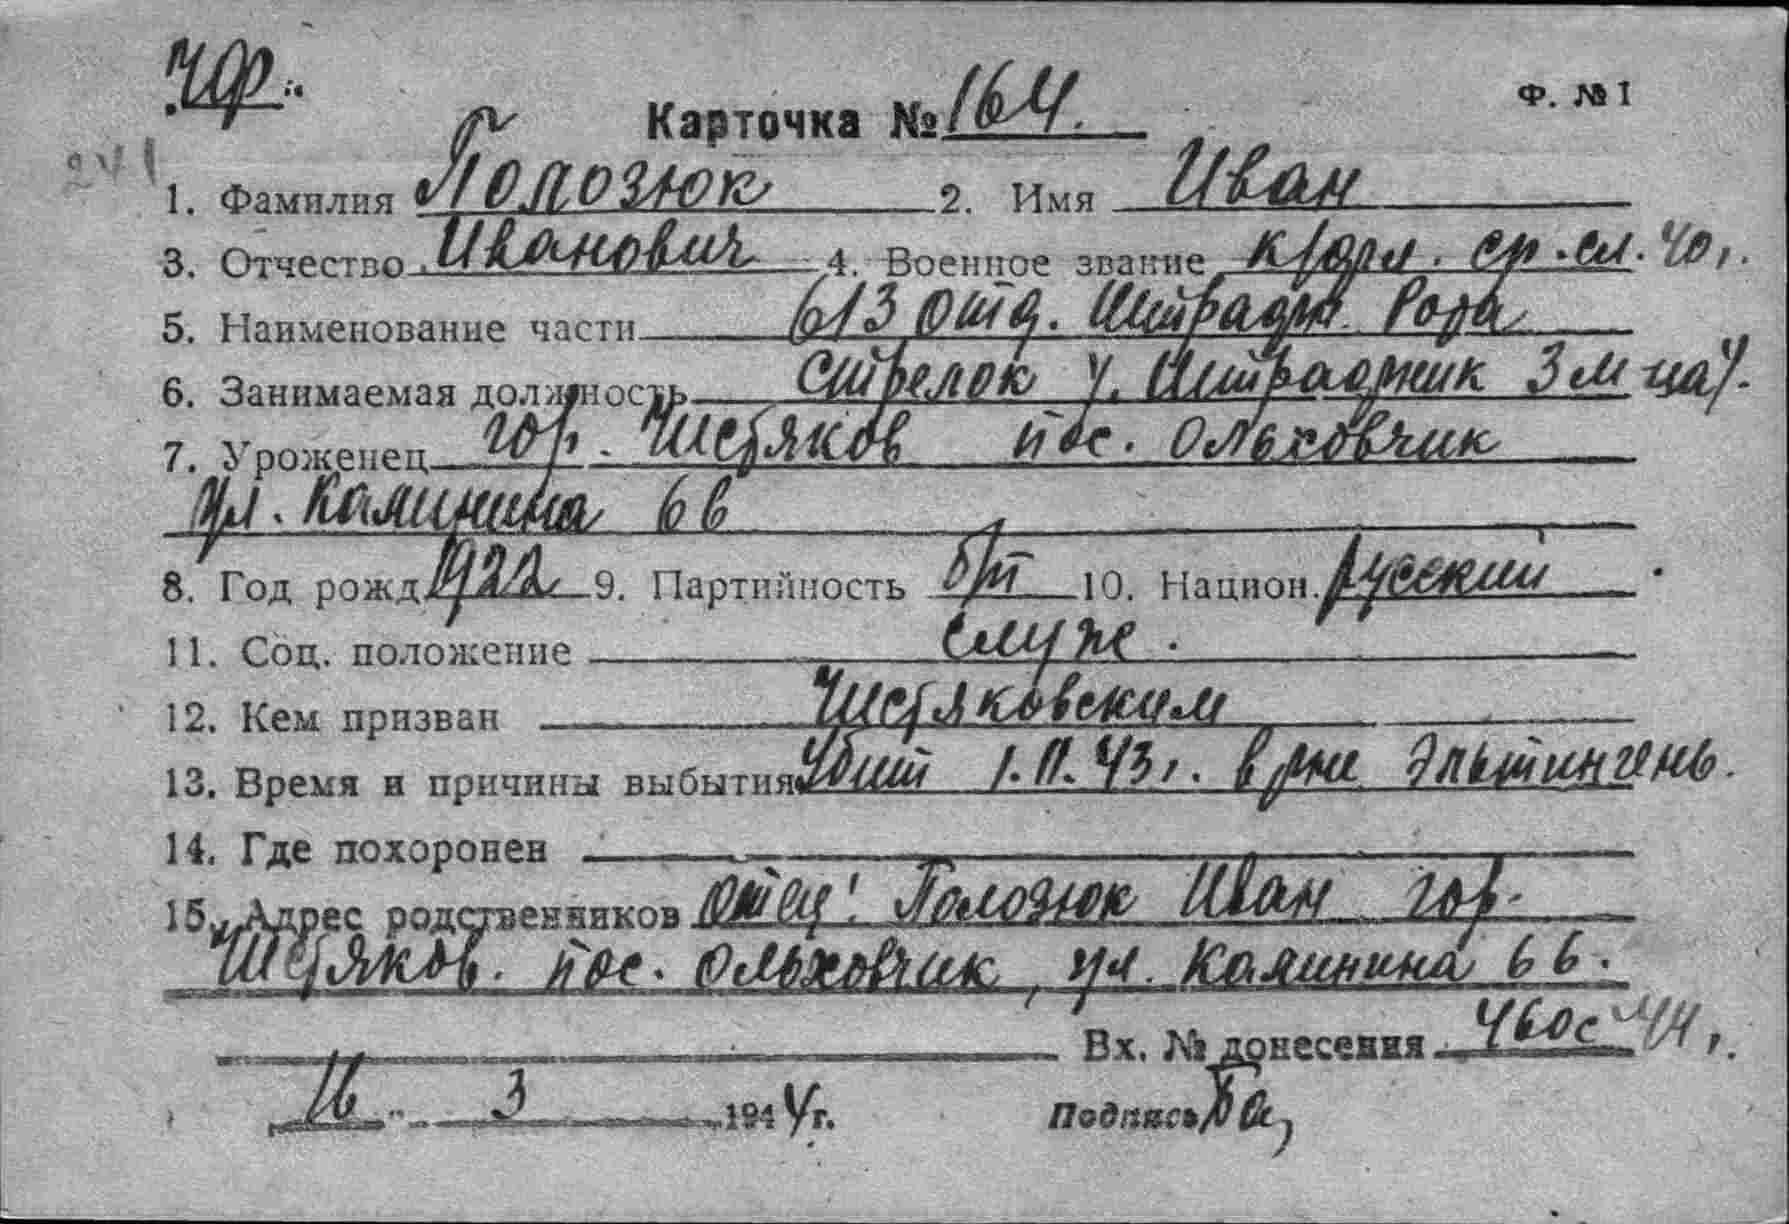 ЧФ.
Ф. № 1
Карточка № 164.
241
1. Фамилия Полозюк 2. Имя Иван
3. Отчество Иванович 4. Военное звание к/фл. ср. сл. 40г.
5. Наименование части 613 отд. Штрафн. Рота
6. Занимаемая должность стрелок /. Штрафник 3 м-ца/.
7. Уроженец гор. Чистяков пос. Ольховчик
ул. Калинина 66
8. Год рожд 1922 9. Партийность б/п 10. Национ. русский
11. Соц. положение служ.
12. Кем призван Чистяковским
13. Время и причины выбытия Убит 1.11.43г. в р-не Эльтинген.
14. Где похоронен
15. Адрес родственников отец: Полозюк Иван гор.
Чистяков. пос. Ольховчик, ул. Калинина 66.
Вх. № донесения 460с 44г.
16 3 1944г. Подпись